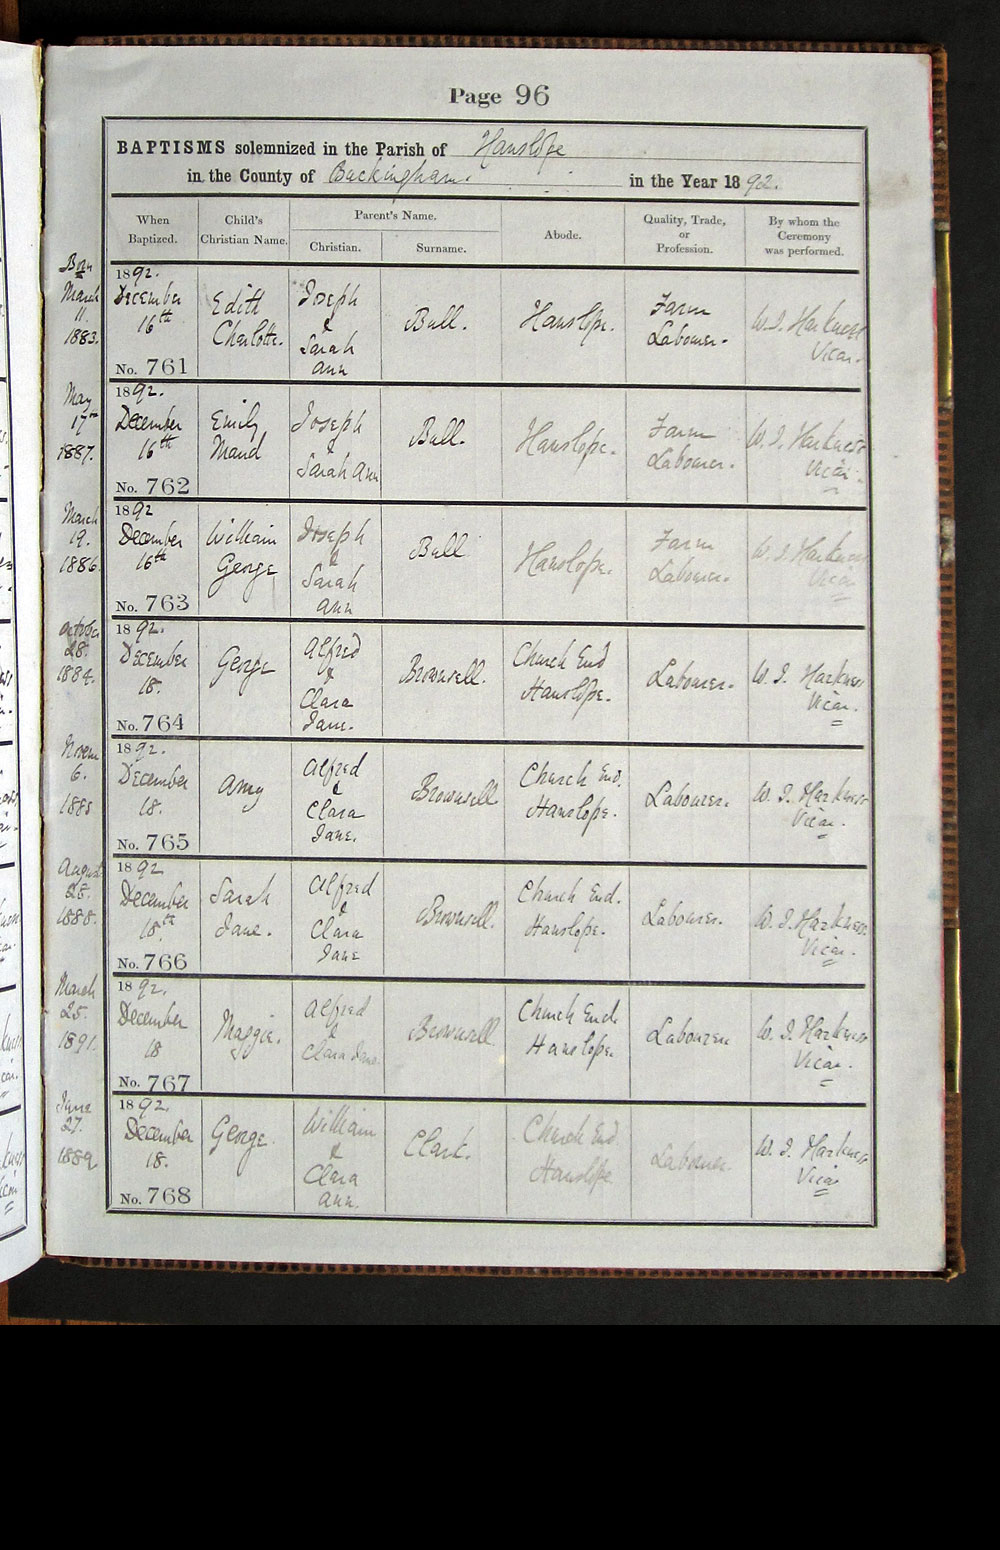 Page 96
BAPTISMS solemnized in the Parish of Hanslope
in the County of Buckingham. in the Year 1892.
When Baptized.
Child's Christian Name.
Parent's Name.
Christian.
Surname.
Abode.
Quality, Trade, or Profession.
By whom the Ceremony was performed.
Born
March
11.
1883.
1892.
December
16th
No. 761
Edith
Charlotte.
Joseph
&
Sarah
Ann
Bull.
Hanslope.
Farm
Labourer.
W. J. Harkness
Vicar.
May
17th
1887.
1892.
December
16th
No. 762
Emily
Maud
Joseph
&
Sarah Ann
Bull.
Hanslope.
Farm
Labourer.
W. J. Harkness
Vicar.
March
19.
1886.
1892
December
16th
No. 763
William
George
Joseph
&
Sarah
Ann
Bull
Hanslope.
Farm
Labourer.
W. J. Harkness
Vicar
October
28.
1884.
1892.
December
18.
No. 764
George
Alfred
&
Clara
Jane.
Brownsell.
Church End
Hanslope.
Labourer.
W. J. Harkness
Vicar.
Novem
6.
1885
1892.
December
18.
No. 765
Amy
Alfred
&
Clara
Jane.
Brownsell
Church End.
Hanslope.
Labourer.
W. J. Harkness
Vicar.
August
25.
1888.
1892
December
18th
No. 766
Sarah
Jane.
Alfred
&
Clara
Jane
Brownsell.
Church End.
Hanslope.
Labourer.
W. J. Harkness
Vicar.
March
25.
1891.
1892.
December
18
No. 767
Maggie.
Alfred
&
Clara Jane
Brownsell
Church End.
Hanslope.
Labourer
W. J. Harkness
Vicar.
June
27.
1889.
1892.
December
18.
No. 768
George.
William
&
Clara
Ann.
Clark.
Church End.
Hanslope
Labourer.
W. J. Harkness
Vicar